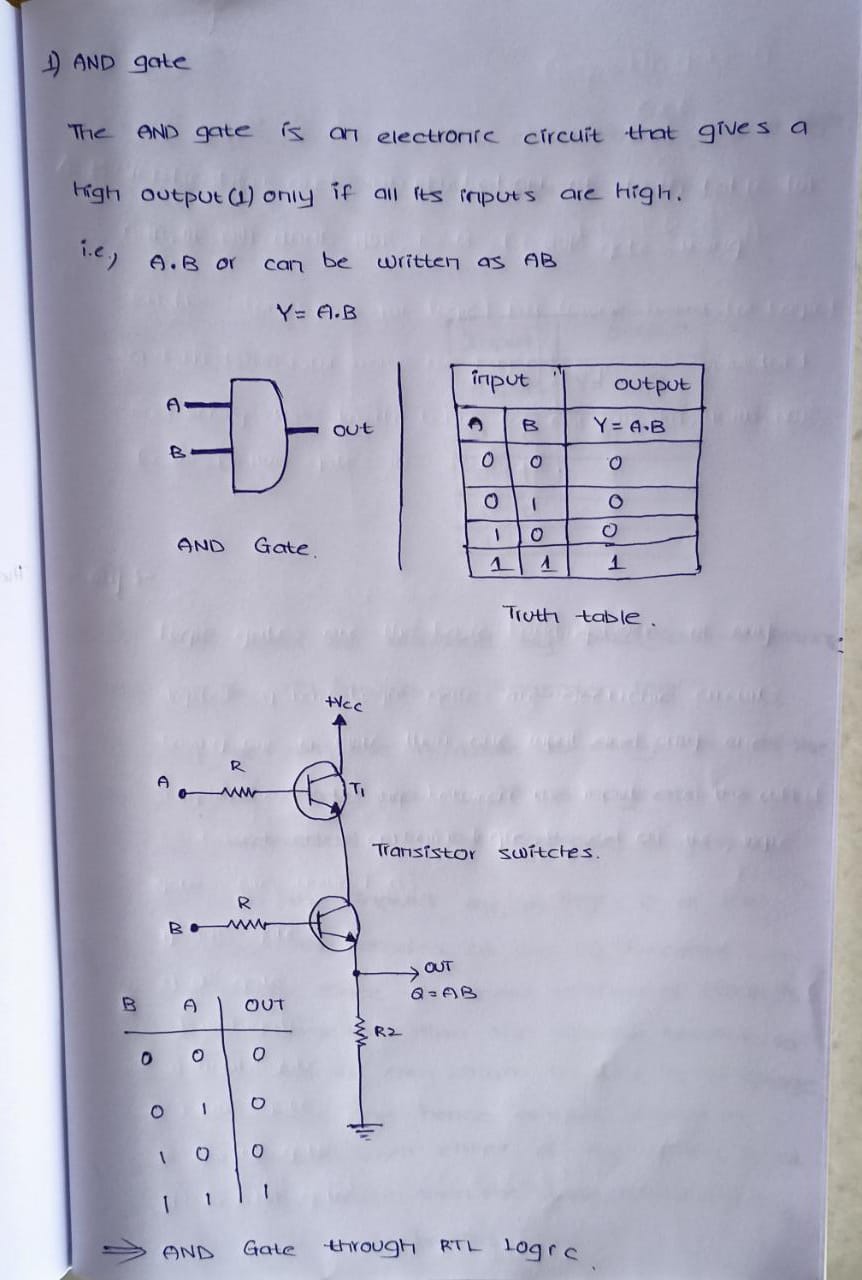 1) AND gate
The AND gate is an electronic circuit that gives a
high output (1) only if all its inputs are high.
i.e., A.B or can be written as AB
Y = A.B
A
B
out
AND Gate.
input output
A B Y = A.B
0 0 0
0 1 0
1 0 0
1 1 1
Truth table.
+Vcc
R
A
T1
Transistor switches.
R
B
OUT
Q = AB
R2
B A OUT
0 0 0
0 1 0
1 0 0
1 1 1
⇒ AND Gate through RTL Logic.